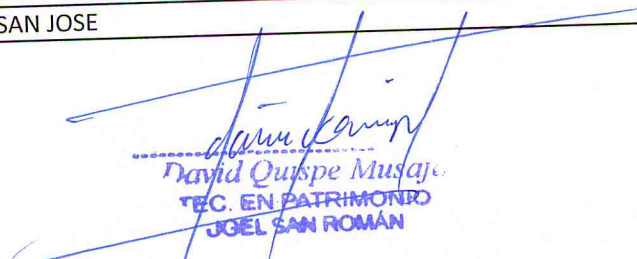 SAN JOSE
David Quispe Musaja
TEC. EN PATRIMONIO
UGEL SAN ROMÁN